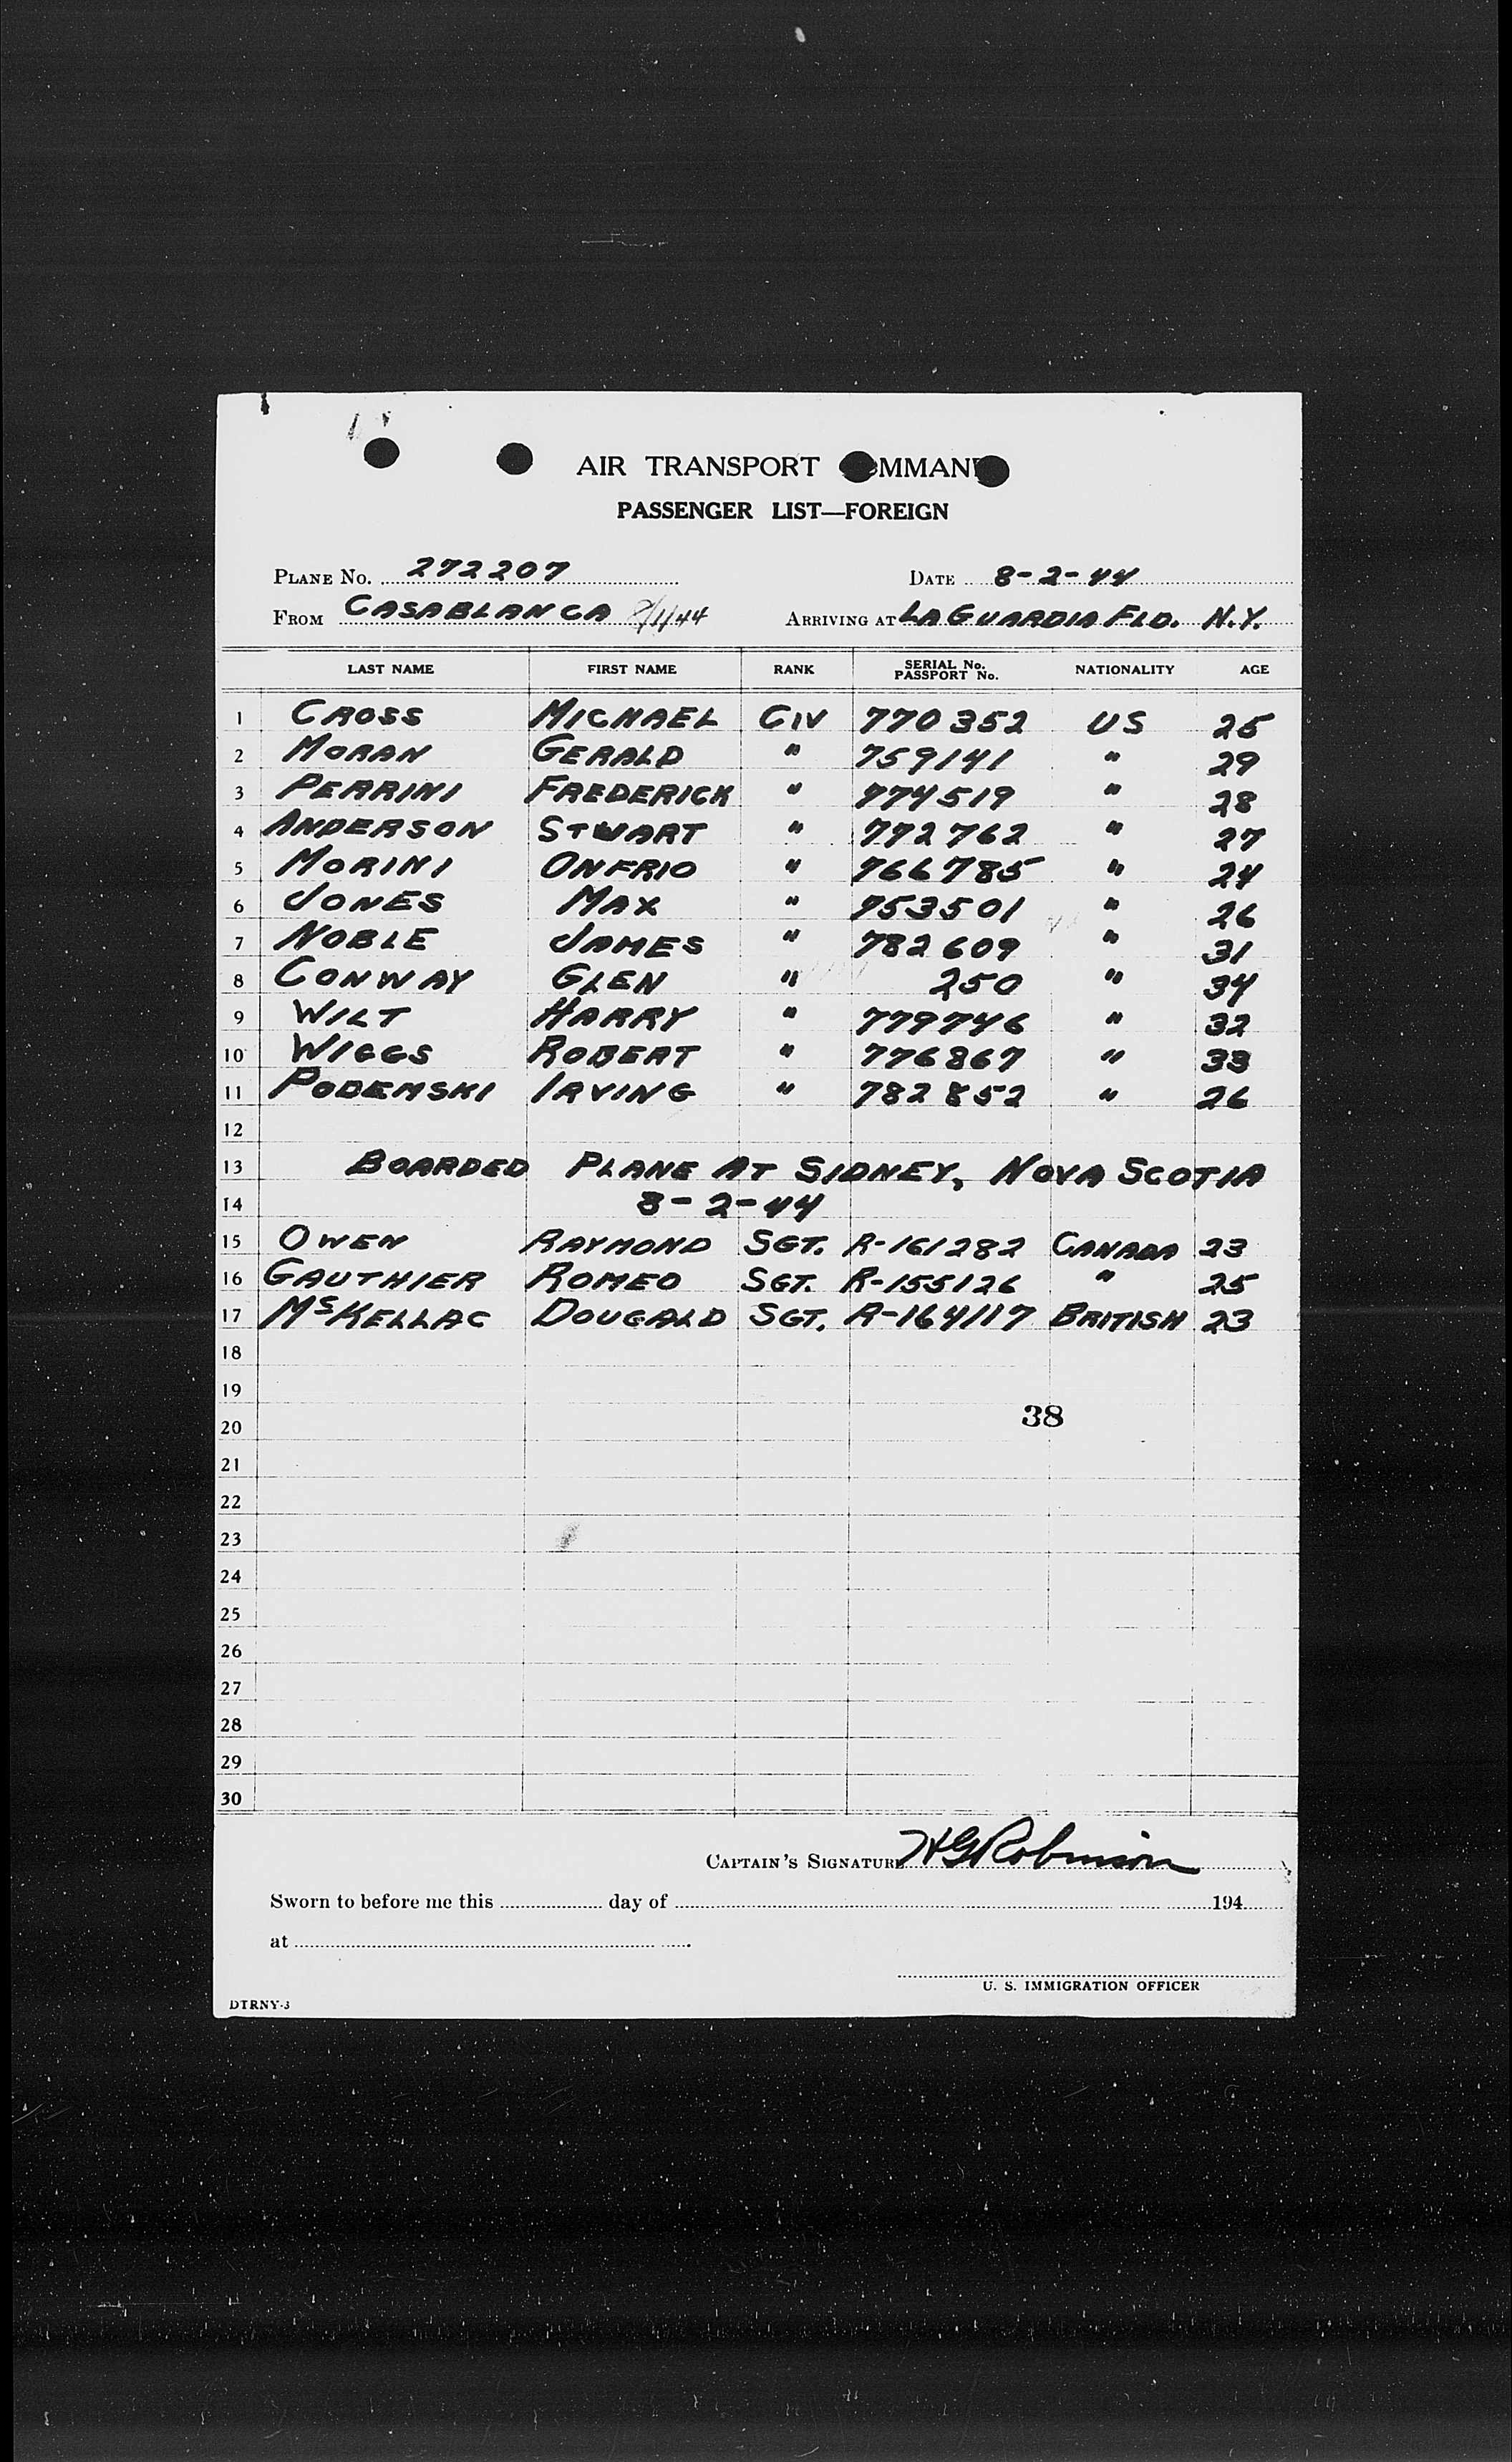 AIR TRANSPORT COMMAND
PASSENGER LIST—FOREIGN
PLANE No. 272207 DATE 8-2-44
FROM CASABLANCA 8/1/44 ARRIVING AT LA GUARDIA FLD. N.Y.
LAST NAME FIRST NAME RANK SERIAL No. PASSPORT No. NATIONALITY AGE
1 CROSS MICHAEL CIV 770352 US 25
2 MORAN GERALD " 759141 " 29
3 PERRINI FREDERICK " 774519 " 28
4 ANDERSON STWART " 772762 " 27
5 MORINI ONFRIO " 766785 " 24
6 JONES MAX " 753501 " 26
7 NOBLE JAMES " 782609 " 31
8 CONWAY GLEN " 250 " 34
9 WILT HARRY " 779746 " 32
10 WIGGS ROBERT " 776867 " 33
11 PODEMSKI IRVING " 782852 " 26
12
13 BOARDED PLANE AT SIDNEY, NOVA SCOTIA
14 8-2-44
15 OWEN RAYMOND SGT. R-161282 CANADA 23
16 GAUTHIER ROMEO SGT. R-155126 " 25
17 McKELLAC DOUGALD SGT. R-164117 BRITISH 23
18
19
38
20
21
22
23
24
25
26
27
28
29
30
CAPTAIN'S SIGNATURE HG Robinson
Sworn to before me this day of 194
at
U. S. IMMIGRATION OFFICER
DTRNY-3